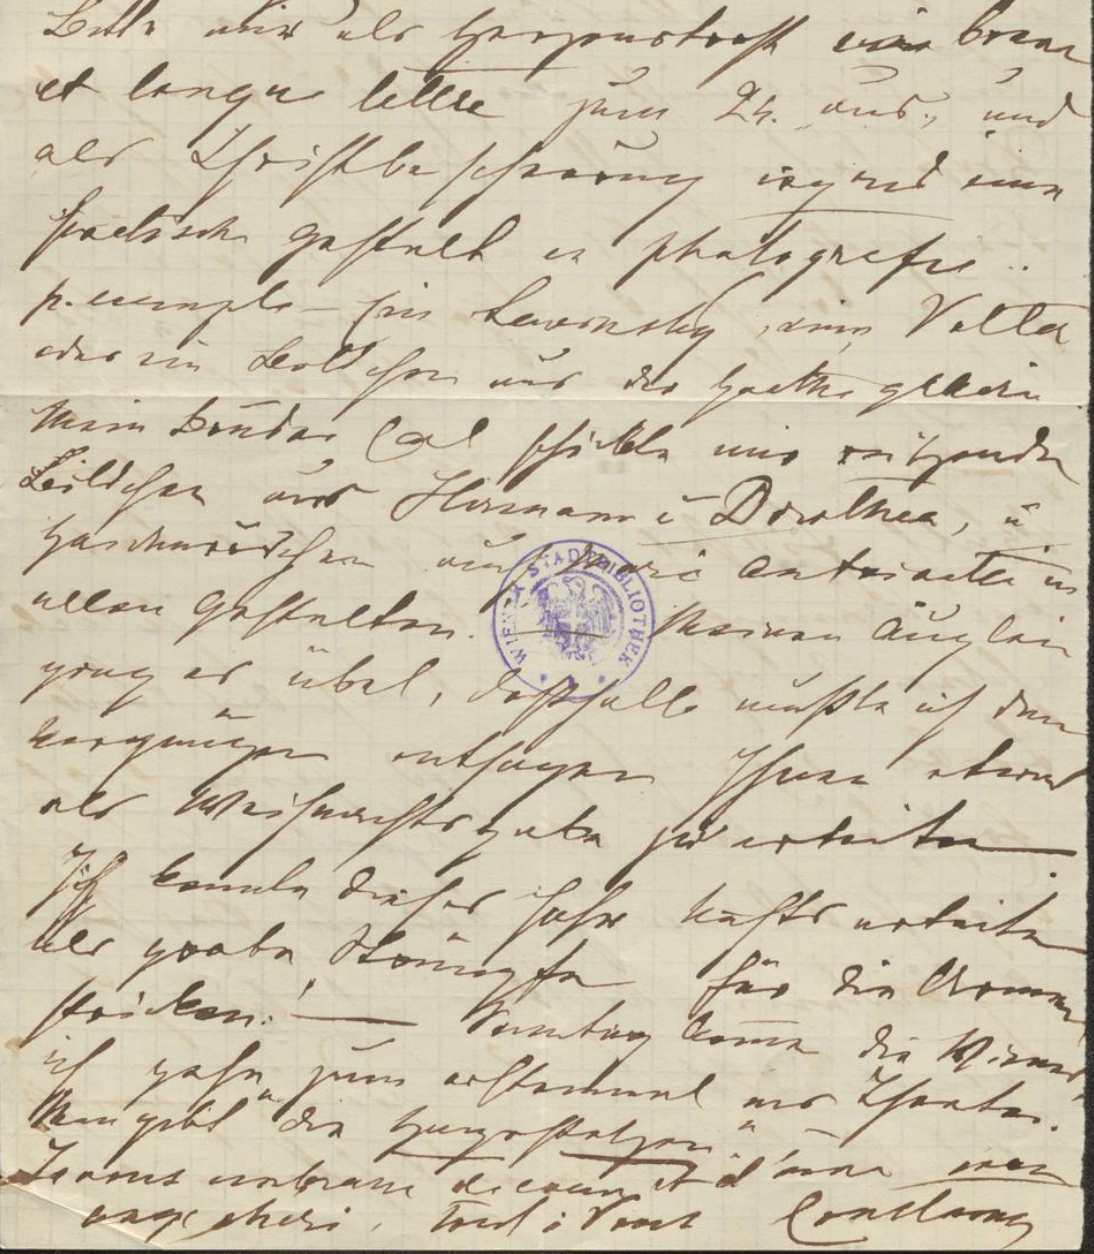 Bitte mir als Herzenstrost eine bonne
et longue lettre zum 24. aus, und
als Christbescherung irgend eine
poetische Gestalt en photografie ..
p. exemple – ein Lewinsky, eine Volter
oder ein Bildchen aus der Goethe gallerie
Mein Bruder Carl schickte mir reitzende
Bildchen aus Hermann u Dorothea, u
auch Marie Antoinette in
allen Gestalten. — Meinen Äuglein
ging es übel, desshalb musste ich dem
Vergnügen entsagen Ihnen etwas
als Weihnachtsgabe zu arbeiten —
Ich konnte dieses Jahr nichts arbeiten
als grobe Strümpfe für die Armen
stricken! — Sonntag komm die Wiener,
ich gehe zum erstenmal ins Theater.
Man gibt "die
Je vous embrasse de coeur et d'âme mon
ange cheri, tout à vous Constanze
WIENER STADTBIBLIOTHEK